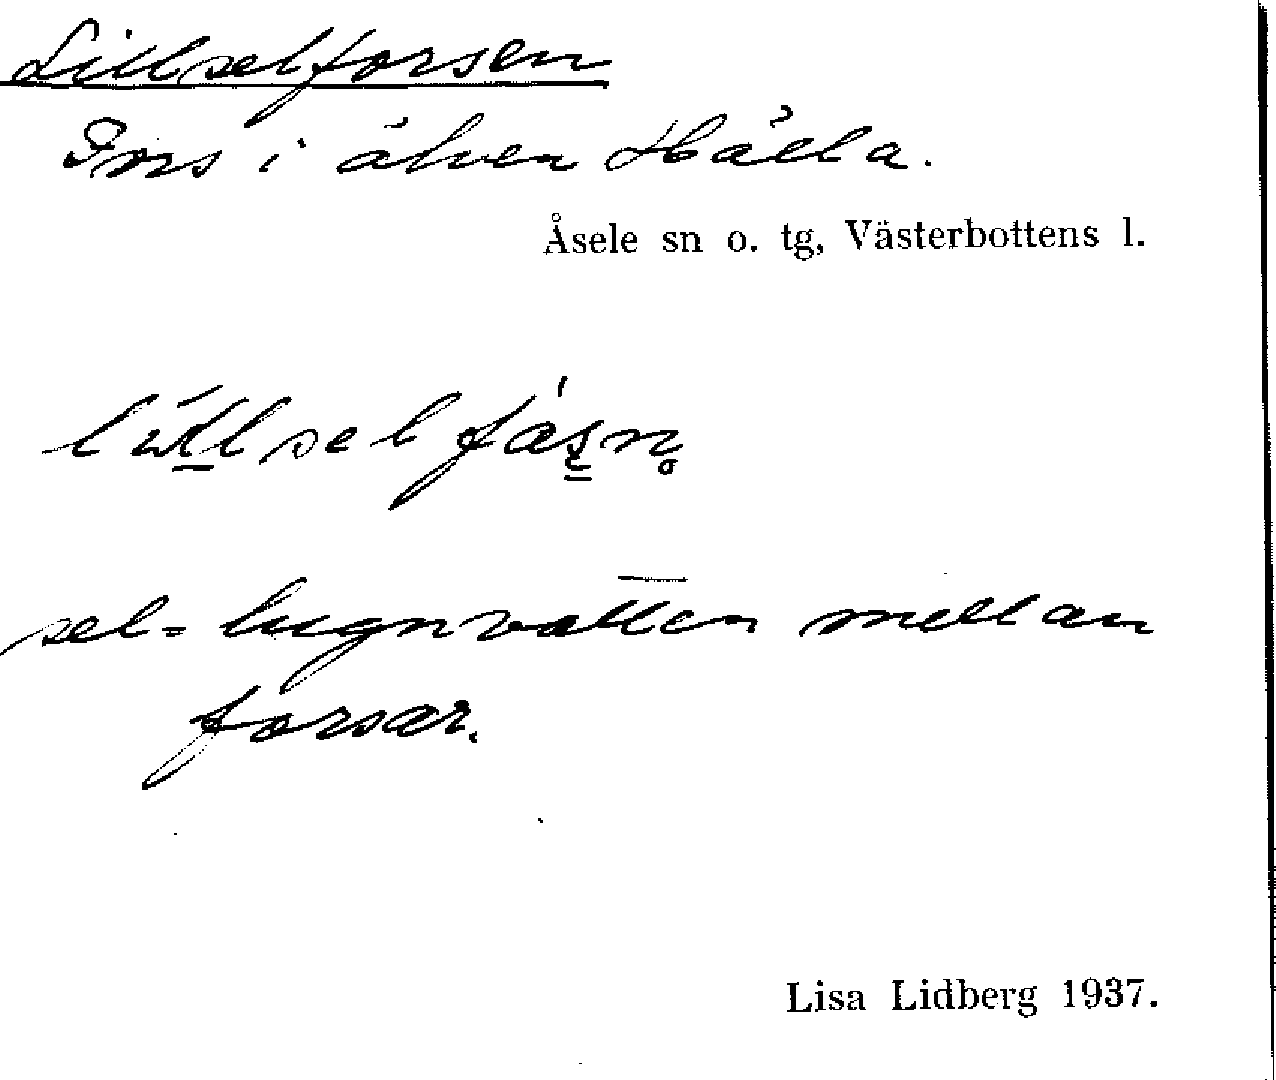 Lillselforsen
Fors i älven Hälla.
Åsele sn o. tg, Västerbottens l.
sel = lugnvatten mellan
forsar.
Lisa Lidberg 1937.